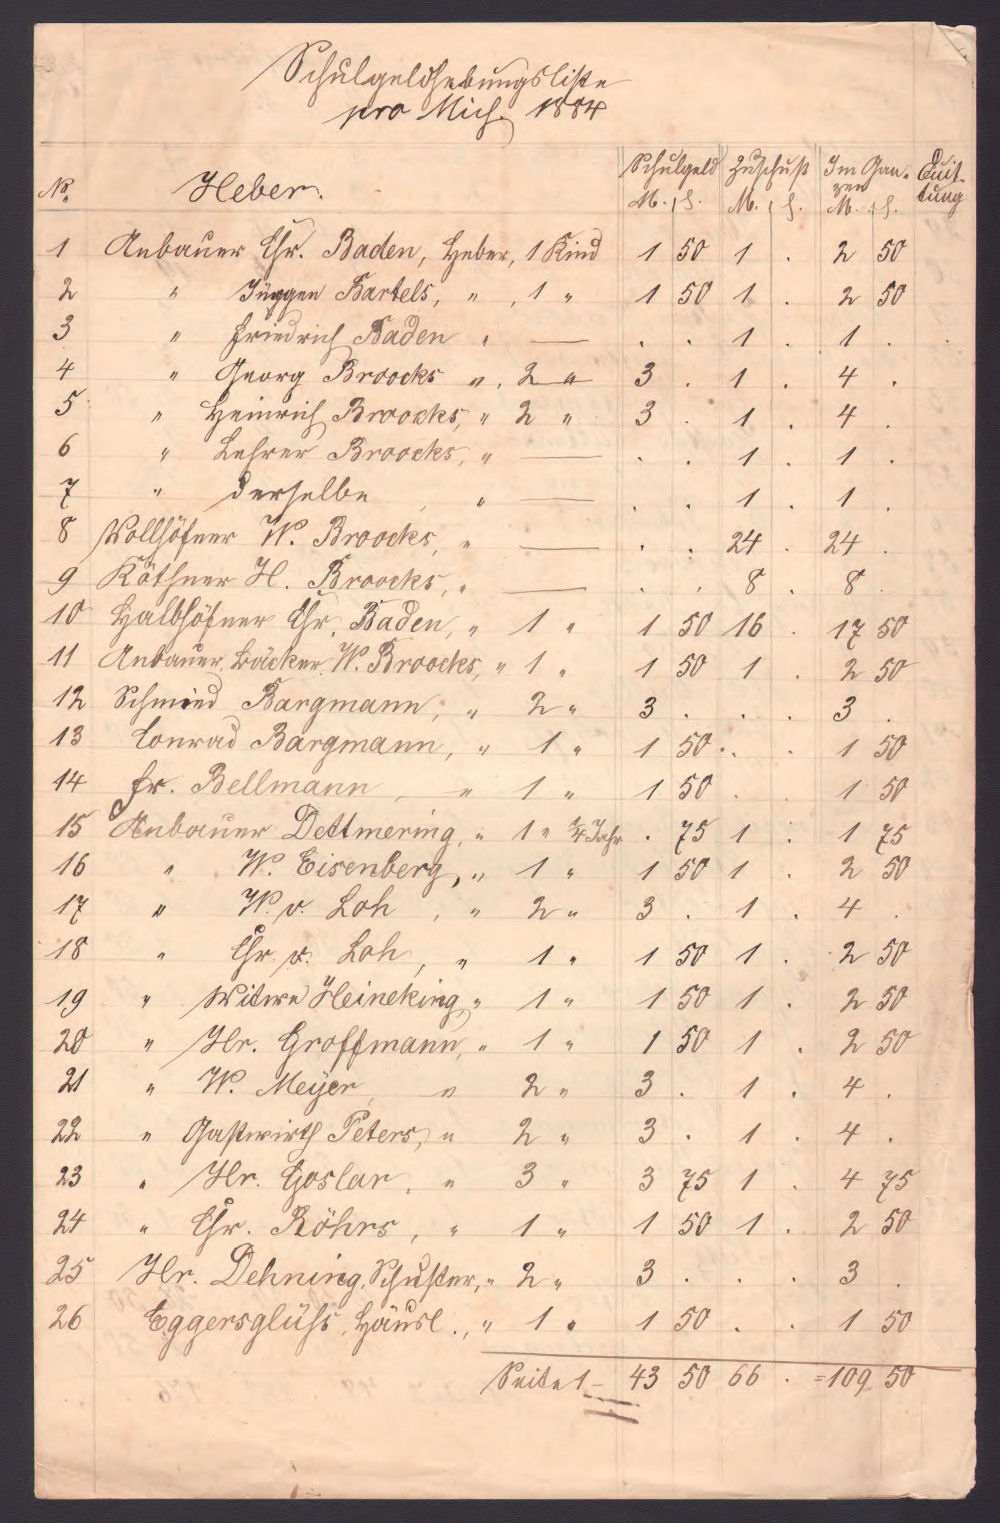 Schulgeldhebungsliste
pro Mich. 1884
No. Heber. Schulgeld M. | ₰. Zuschuß M. | ₰. Im Gan-zen M. | ₰. Quit-tung
1 Anbauer Chr. Baden, Heber, 1 Kind 1 50 1 . 2 50
2 " Jürgen Bartels, " , 1 " 1 50 1 . 2 50
3 " Friedrich Baden " — . . 1 . 1 .
4 " Georg Broocks " , 2 " 3 . 1 . 4 .
5 " Heinrich Broocks, " 2 " 3 . 1 . 4 .
6 " Lehrer Broocks, " — . . 1 . 1 .
7 " derselbe , " — . . 1 . 1 .
8 Vollhöfner W. Broocks, " — . . 24 . 24 .
9 Köthner H. Broocks, " — . . 8 . 8 .
10 Halbhöfner Chr. Baden, " 1 " 1 50 16 . 17 50
11 Anbauer, Bäcker W. Broocks, " 1 " 1 50 1 . 2 50
12 Schmied Bargmann, " 2 " 3 . . . 3 .
13 Conrad Bargmann, " 1 " 1 50 . . 1 50
14 Fr. Bellmann , " 1 " 1 50 . . 1 50
15 Anbauer Dettmering, " 1 " 1/4 Jahr . 75 1 . 1 75
16 " W. Eisenberg, " 1 " 1 50 1 . 2 50
17 " W. v. Loh , " 2 " 3 . 1 . 4 .
18 " Chr. v. Loh , " 1 " 1 50 1 . 2 50
19 " Witwe Heineking, " 1 " 1 50 1 . 2 50
20 " Hr. Groffmann, " 1 " 1 50 1 . 2 50
21 " W. Meyer, " 2 " 3 . 1 . 4 .
22 " Gastwirth Peters, " 2 " 3 . 1 . 4 .
23 " Hr. Goslar, " 3 " 3 75 1 . 4 75
24 " Chr. Röhrs, " 1 " 1 50 1 . 2 50
25 Hr. Dehning, Schuster, " 2 " 3 . . . 3 .
26 Eggersglüß, Häusl., " 1 " 1 50 . . 1 50
Seite 1 – 43 50 66 . = 109 50